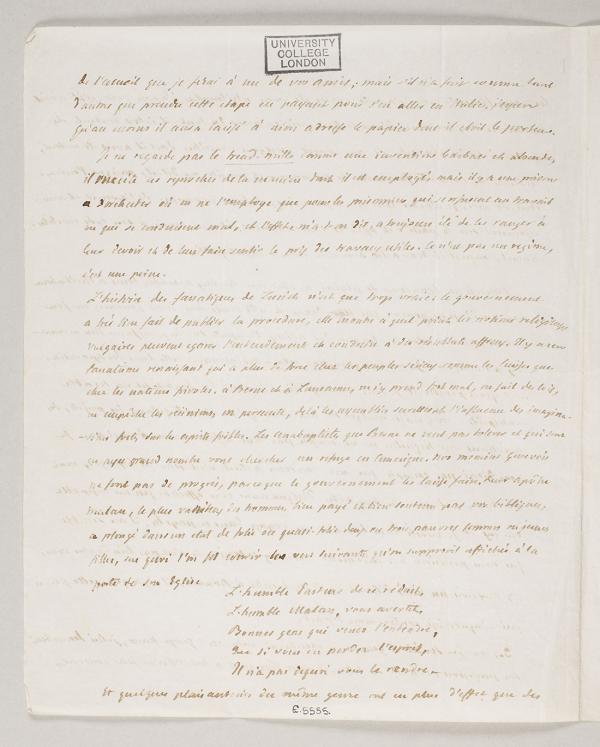 UNIVERSITY
COLLEGE
LONDON
de l'accueil que je ferai à un de vos amis; mais s'il n'a fait comme tant
d'autres que prendre cette étape en payant pour s'en aller en Italie, j'espère
qu'au moins il aura laissé à mon adresse le papier dont il étoit le porteur.
Je ne regarde pas le tread-mill comme une invention
il des reproches de la manière dont il est employé, mais il y a une prison
à Dorchester où on ne l'employe que pour les prisonniers qui se refusent au travail
ou qui se conduisent mal, et l'effet, m'a-t-on dit, a toujours été de les ranger à
leur devoir et de leur faire sentir le prix des travaux utiles. Ce n'est pas un régime,
c'est une peine.
L'histoire des fanatiques de Zurich n'est que trop vraie: le gouvernement
a très bien fait de publier la procédure, elle montre à quel point les notions religieuses
vulgaires peuvent égarer l'entendement et conduire à des résultats affreux. Il y a un
fanatisme renaissant qui a plus de chez les peuples sérieux comme les Suisses que
chez les nations frivoles. à Berne et à Lausanne, on s'y prend fort mal, on fait des loix,
on empêche les réunions, on persécute, delà les assemblées secrettes et l'influence des imagina-
-tions fortes sur les esprits foibles. Les anabaptistes que Berne ne veut pas tolérer et qui sont
en assez grand nombre vont chercher un refuge en Amérique. Nos momiers Genevois
ne font pas de progrès, parce que le gouvernement les laisse faire. Leur apôtre
Malan, le plus vaniteux des hommes, bien payé et bien soutenu par vos bibliques,
a plongé dans un état de folie ou quasi-folie deux ou trois pauvres femmes ou jeunes
filles, sur quoi l'on fit courir les vers suivants qu'on supposoit affichés à la
porte de son Eglise
L'humble Pasteur de ce réduit,
L'humble Malan, vous avertit,
Bonnes gens qui venez l'entendre,
Que si vous en perdez l'esprit,
Il n'a pas de quoi vous le rendre.
Et quelques plaisanteries du même genre ont eu plus d'effet que des
C.5555.